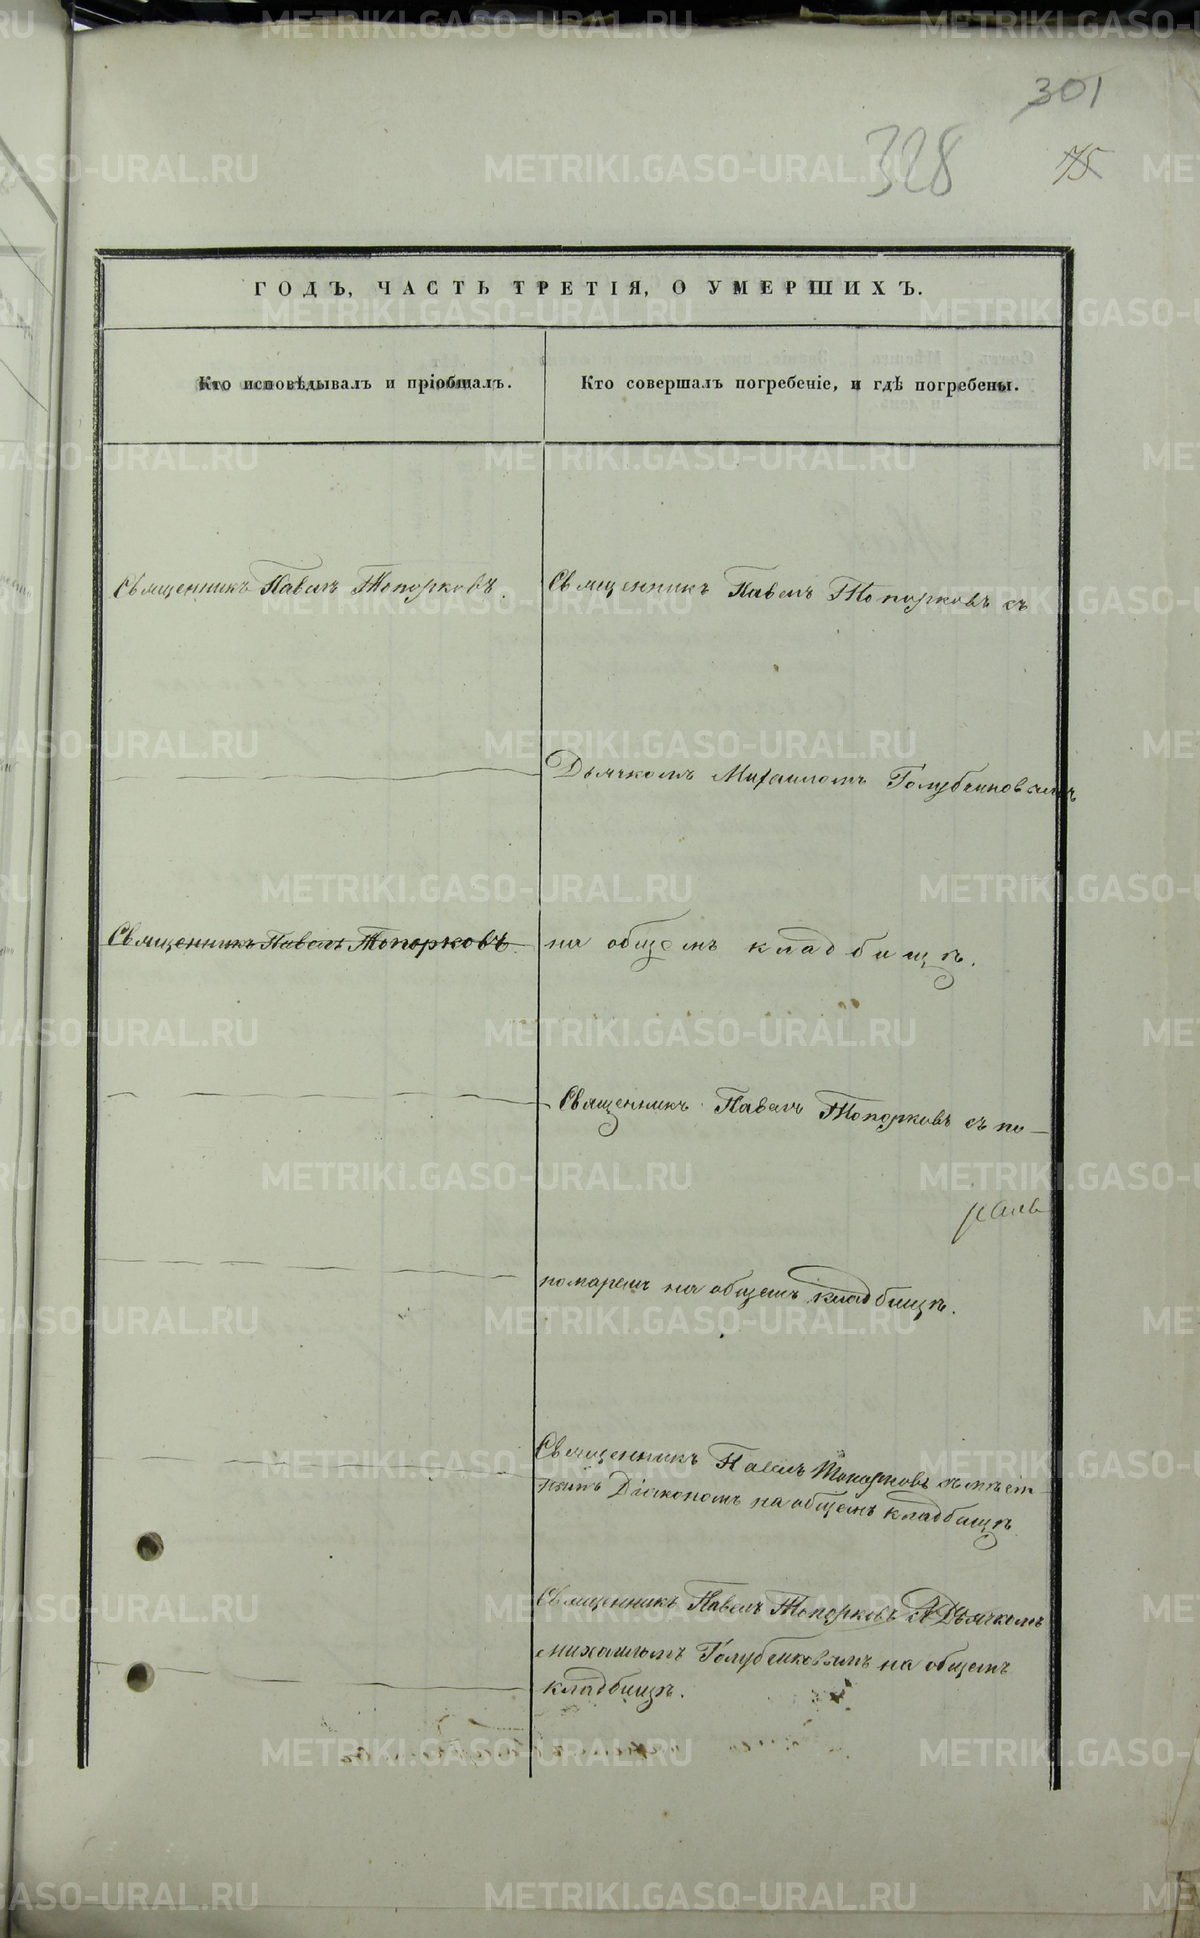 301
328
75
ГОДЪ, ЧАСТЬ ТРЕТІЯ, О УМЕРШИХЪ.
Кто исповѣдывалъ и пріобщалъ.
Кто совершалъ погребеніе, и гдѣ погребены.
Священникъ Павелъ Топорковъ.
Священникъ Павелъ Топорковъ съ
Дьячкомъ Михаиломъ Голубчиковымъ
Священникъ Павелъ Топорковъ.
на общемъ кладбищѣ.
Священникъ Павелъ Топорковъ съ по-
номаремъ на общемъ кладбищѣ.
Священникъ Павелъ Топорковъ съ мѣст-
нымъ Діакономъ на общемъ кладбищѣ
Священникъ Павелъ Топорковъ съ Дьячкомъ
Михаиломъ Голубчиковымъ на общемъ
кладбищѣ.
METRIKI.GASO-URAL.RU